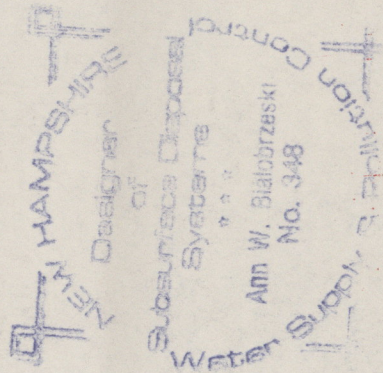 NEW HAMPSHIRE
Designer
of
Subsurface Disposal
Systems
* * *
Ann W. Bialobrzeski
No. 348
Water Supply & Pollution Control